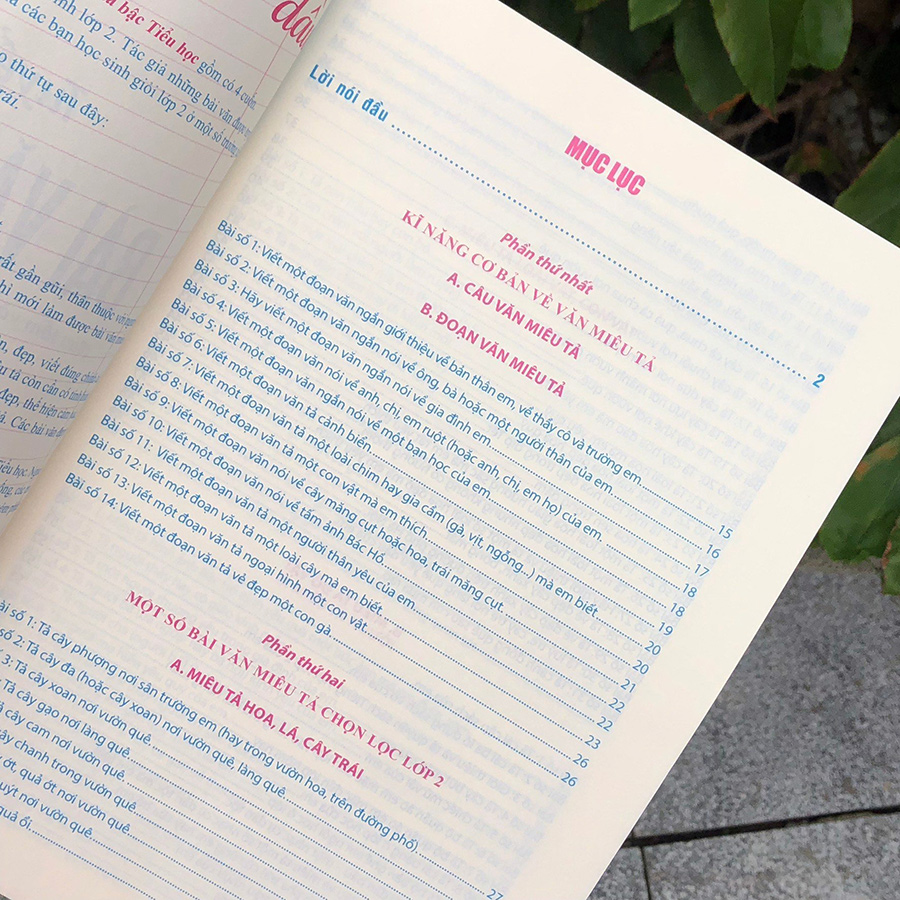 dấu
a bậc Tiểu học gồm có 4 cuốn.
inh lớp 2. Tác giả những bài văn được
à các bạn học sinh giỏi lớp 2 ở một số trường
o thứ tự sau đây:
rái.
rất gần gũi, thân thuộc với
hi mới làm được bài văn
n, đẹp, viết đúng chính
u tả còn cần có tính
đẹp, thể hiện cảm
á. Các bài văn
MỤC LỤC
Lời nói đầu ........ 2
Phần thứ nhất
KĨ NĂNG CƠ BẢN VỀ VĂN MIÊU TẢ
A. CÂU VĂN MIÊU TẢ
B. ĐOẠN VĂN MIÊU TẢ
Bài số 1: Viết một đoạn văn ngắn giới thiệu về bản thân em, về thầy cô và trường em ........ 15
Bài số 2: Viết một đoạn văn ngắn nói về ông, bà hoặc một người thân của em ........ 16
Bài số 3: Hãy viết một đoạn văn ngắn nói về gia đình em ........ 17
Bài số 4: Viết một đoạn văn nói về anh, chị, em ruột (hoặc anh, chị, em họ) của em ........ 18
Bài số 5: Viết một đoạn văn ngắn nói về một bạn học của em ........ 18
Bài số 6: Viết một đoạn văn tả cảnh biển ........ 19
Bài số 7: Viết một đoạn văn tả một loài chim hay gia cầm (gà, vịt, ngỗng..) mà em biết ........ 20
Bài số 8: Viết một đoạn văn tả một con vật mà em thích ........ 20
Bài số 9: Viết một đoạn văn nói về cây măng cụt hoặc hoa, trái măng cụt ........ 21
Bài số 10: Viết một đoạn văn nói về tấm ảnh Bác Hồ ........ 22
Bài số 11: Viết một đoạn văn tả một người thân yêu của em ........ 22
Bài số 12: Viết một đoạn văn tả một loại cây mà em biết ........ 23
Bài số 13: Viết một đoạn văn tả ngoại hình một con vật ........ 26
Bài số 14: Viết một đoạn văn tả vẻ đẹp một con gà ........ 26
Phần thứ hai
MỘT SỐ BÀI VĂN MIÊU TẢ CHỌN LỌC LỚP 2
A. MIÊU TẢ HOA, LÁ, CÂY TRÁI
ài số 1: Tả cây phượng nơi sân trường em (hay trong vườn hoa, trên đường phố) ........ 27
số 2: Tả cây đa (hoặc cây xoan) nơi vườn quê, làng quê
3: Tả cây xoan nơi vườn quê
Tả cây gạo nơi làng quê
ả cây cam nơi vườn quê
ây chanh trong vườn quê
ớt, quả ớt nơi vườn quê
uýt nơi vườn quê
quả ổi